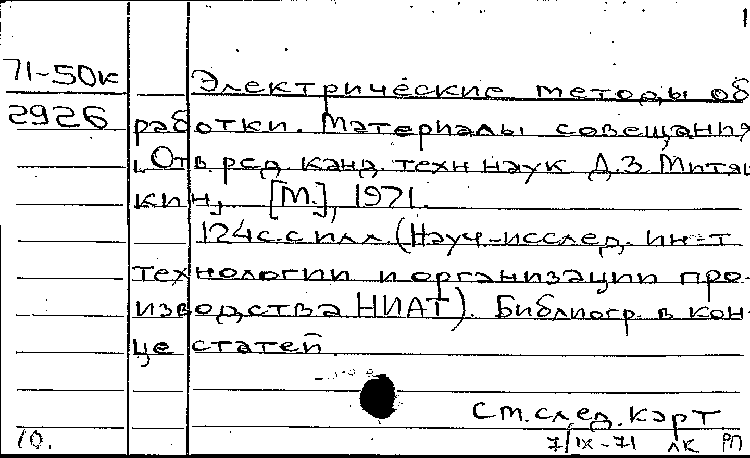 1
71-50к Электрические методы об
2926 работки. Материалы совещания
[Отв ред. канд. техн наук Д.З. Митяш
кин], [М.], 1971.
124с.с илл. (Науч-исслед. ин-т
технологии и организации про-
изводства НИАТ). Библиогр. в кон-
це статей.
См. след. карт
10. 7/IX-71 ЛК РП